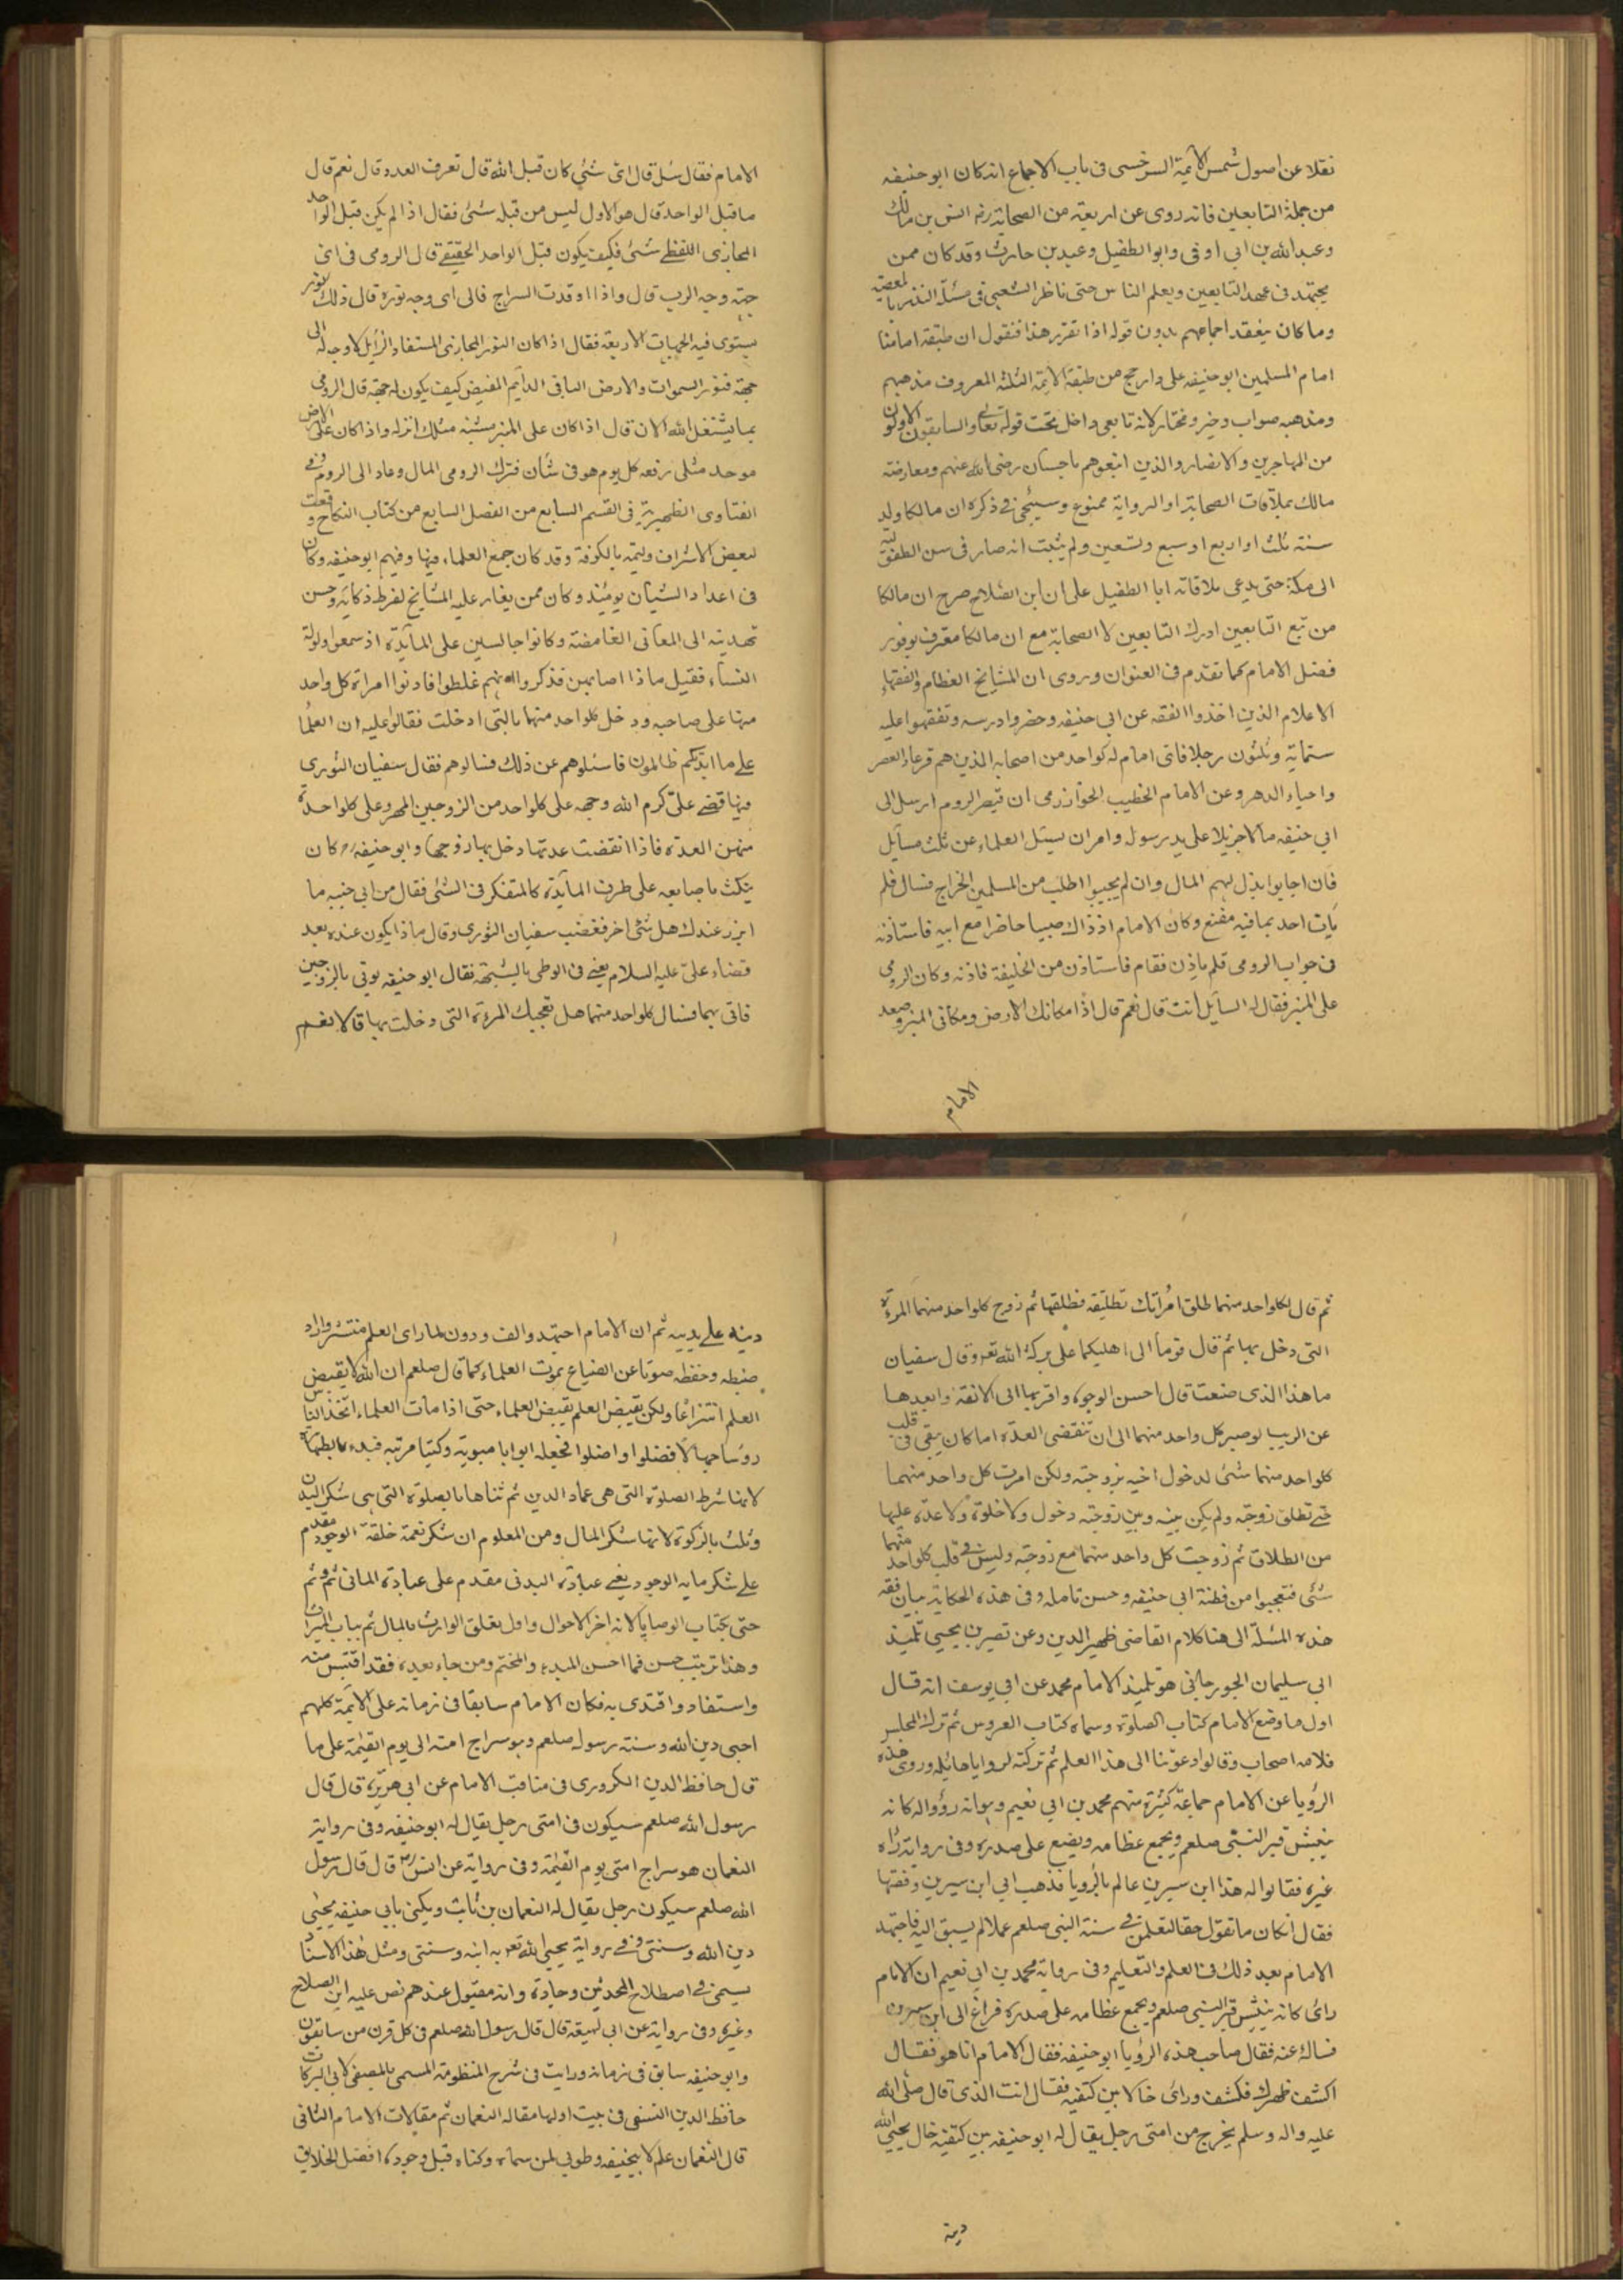 نقلا عن اصول شمس الائمة السرخسى فى باب الاجماع انه كان ابو حنيفه
من جملة التابعين فانه روى عن اربعة من الصحابة رضه انس بن مالك
وعبد الله بن ابى اوفى وابو الطفيل وعبد بن حارث وقد كان ممن
يجتهد فى عهد التابعين ويعلم الناس حتى ناظر الشعبى فى مسئلة النذر بالمعصية
وما كان ينعقد اجماعهم بدون قوله اذا تقرر هذا فنقول ان طبقة امامنا
امام المسلمين ابو حنيفه على وارجح من طبقة الائمة الثلثة المعروف مذهبهم
ومذهبه صواب وخير ومختار لانه تابعى داخل تحت قوله تعالى والسابقون الاولون
من المهاجرين والانصار والذين اتبعوهم باحسان رضى الله عنهم ومعارضة
مالك بملاقات الصحابة او الرواية ممنوع وسيجئ فى ذكره ان مالكا ولد
سنة ثلث او اربع او سبع وتسعين ولم يثبت انه صار فى سن الطفولية
الى مكة حتى يدعى ملاقاته ابا الطفيل على ان ابن الصلاح صرح ان مالكا
من تبع التابعين ادرك التابعين لا الصحابة مع ان مالكا معترف بوفور
فضل الامام كما تقدم فى العنوان وروى ان المشايخ العظام والفقهاء
الاعلام الذين اخذوا الفقه عن ابى حنيفه وحضروا درسه وتفقهوا عليه
ستماية وثلثون رجلا فاتى امام له كواحد من اصحابه الذين هم قرعاء العصر
واحياء الدهر وعن الامام الخطيب الخوارزمى ان قيصر الروم ارسل الى
ابى حنيفه مالا جزيلا على يد رسوله وامر ان يسئل العلماء عن ثلث مسايل
فان اجابوا بذل لهم المال وان لم يجيبوا اطلب من المسلمين الخراج فسال فلم
يات احد بما فيه مقنع وكان الامام اذ ذاك صبيا حاضرا مع ابيه فاستاذنه
فى جواب الرومى فلم ياذن فقام فاستاذن من الخليفة فاذنه وكان الرومى
على المنبر فقال له السايل انت قال نعم قال اذا مكانك الارض ومكانى المنبر وصعد
الامام
الامام فقال سل قال اى شئ كان قبل الله قال تعرف العدد قال نعم قال
ما قبل الواحد قال هو الاول ليس من قبله شئ فقال اذا لم يكن قبل الواحد
المجازى اللفظى شئ فكيف يكون قبل الواحد الحقيقى قال الرومى فى اى
جهة وجه الرب قال واذا اوقدت السراج فالى اى وجه نوره قال ذلك نور
يستوى فيه الجهات الاربعة فقال اذا كان النور المجازى المستفاد الزايل لا وجه له الى
جهة فنور السموات والارض الباقى الدايم المفيض كيف يكون له جهة قال الرومى
بما يشتغل الله الان قال اذا كان على المنبر مشبه مثلك انزله واذا كان على الارض
موحد مثلى رفعه كل يوم هو فى شان فترك الرومى المال وعاد الى الروم وفى
الفتاوى الظهيرية فى القسم السابع من الفصل السابع من كتاب النكاح وقعت
لبعض الاشراف وليمة بالكوفة وقد كان جمع العلماء فيها وفيهم ابو حنيفه وكان
فى اعداد الشبان يومئذ وكان ممن يغار عليه المشايخ لفرط ذكائه وحسن
تهديته الى المعانى الغامضة وكانوا جالسين على المائدة اذ سمعوا ولولة
النساء فقيل ماذا اصابهن فذكروا انهم غلطوا فادنوا امراة كل واحد
منها على صاحبه ودخل كلواحد منهما بالتى ادخلت فقالوا عليه ان العلما
على مائدتكم ظالمون فاسئلوهم عن ذلك فسالوهم فقال سفيان الثورى
فيها قضى على كرم الله وجهه على كلواحد من الزوجين المهر وعلى كلواحدة
منهن العدة فاذا انقضت عدتها دخل بها زوجها وابو حنيفه كان
ينكث باصابعه على طرف المائدة كالمتفكر فى الشئ فقال من ابى جنبه ما
ابرز عندك هل شئ اخر فغضب سفيان الثورى وقال ماذا يكون عنده بعد
قضاء على عليه السلام يعنى فى الوطى بالشبهة فقال ابو حنيفه يوتى بالزوجين
فاتى بهما فسال كلواحد منهما هل تعجبك المرءة التى دخلت بها قالا نعم
ثم قال لكلواحد منهما طلق امراتك تطليقة فطلقها ثم زوج كلواحد منهما المرءة
التى دخل بها ثم قال قوما الى اهليكما على بركة الله تع وقال سفيان
ما هذا الذى صنعت قال احسن الوجوه واقربها الى الالفة وابعدها
عن الريب لو صبر كل واحد منهما الى ان تنقضى العدة اما كان يبقى فى قلب
كلواحد منهما شئ لدخول اخيه بزوجته ولكن امرت كل واحد منهما
حتى تطلق زوجته ولم يكن بينه وبين زوجته دخول ولا خلوة ولا عدة عليها
من الطلاق ثم زوجت كل واحد منهما مع زوجته وليس فى قلب كلواحد منهما
شئ فتعجبوا من فطنة ابى حنيفه وحسن تامله وفى هذه الحكاية بيان فقه
هذه المسئلة الى هنا كلام القاضى ظهير الدين وعن نصير بن يحيى تلميذ
ابى سليمان الجورجانى هو تلميذ الامام محمد عن ابى يوسف انه قال
اول ما وضع الامام كتاب الصلوة وسماه كتاب العروس ثم ترك المجلس
فلامه اصحاب وقالوا دعوتنا الى هذا العلم ثم تركته لرويا هائلة وروى هذه
الرؤيا عن الامام جماعة كثيرة منهم محمد بن ابى نعيم وهو انه رؤوا له كانه
ينبش قبر النبى صلعم ويجمع عظامه ويضع على صدره وفى رواية راه
غيره فقالوا له هذا ابن سيرين عالم بالرويا فذهب ابى ابن سيرين وقصها
فقال ان كان ما تقول حقا لتعلمن فى سنة النبى صلعم عملا لم يسبق اليه فاجتهد
الامام بعد ذلك فى العلم والتعليم وفى رواية محمد بن ابى نعيم ان الامام
راى كانه ينبش قبر النبى صلعم ويجمع عظامه على صدره فراغ الى ابن سيرين
فساله عنه فقال صاحب هذه الرؤيا ابو حنيفه فقال الامام انا هو فقال
اكشف ظهرك فكشف وراى خالا بين كتفيه فقال انت الذى قال صلى الله
عليه واله وسلم يخرج من امتى رجل يقال له ابو حنيفه بين كتفيه خال يحيى الله
دينه
دينه على يديه ثم ان الامام اجتهد والف ودون لما راى العلم منتشرا واراد
ضبطه وحفظه صونا عن الضياع بموت العلماء كما قال صلعم ان الله لا يقبض
العلم انتزاعا ولكن يقبض العلم بقبض العلماء حتى اذا مات العلماء اتخذ الناس
روسا جهالا فضلوا واضلوا فجعله ابوابا مبوبة وكتبا مرتبة فبدء بالطهارة
لانها شرط الصلوة التى هى عماد الدين ثم ثناها بالصلوة التى هى شكر البدن
وثلث بالزكوة لانها شكر المال ومن المعلوم ان شكر نعمة خلقة الوجود مقدم
على شكر مايه الوجود يعنى عبادة البدنى مقدم على عبادة المالى ثم وثم
حتى بكتاب الوصايا لانه اخر الاحوال واول تعلق الوارث بالمال ثم بباب الميراث
وهذا ترتيب حسن فما احسن المبدء والمختم ومن جاء بعده فقد اقتبس منه
واستفاد واقتدى به فكان الامام سابقا فى زمانه على الائمة كلهم
احيى دين الله وسنة رسوله صلعم وهو سراج امته الى يوم القيمة على ما
قال حافظ الدين الكرورى فى مناقب الامام عن ابى هريرة قال قال
رسول الله صلعم سيكون فى امتى رجل يقال له ابو حنيفه وفى رواية
النعمان هو سراج امتى يوم القيمة وفى رواية عن انس رض قال قال رسول
الله صلعم سيكون رجل يقال له النعمان بن ثابت ويكنى بابى حنيفه يحيى
دين الله وسنتى وفى رواية يحيى الله تع به دينه وسنتى ومثل هذا الاسناد
يسمى فى اصطلاح المحدثين وحادة وانه مقبول عندهم نص عليه ابن الصلاح
وغيره وفى رواية عن ابى لهيعة قال قال رسول الله صلعم فى كل قرن من سابقون
وابو حنيفه سابق فى زمانه ورايت فى شرح المنظومة المسمى بالمصفى لابى البركات
حافظ الدين النسفى فى بيت اولها مقاله النعمان ثم مقالات الامام الثانى
قال النعمان علم لابيحنيفه وطوبى لمن سماه وكناه قبل وجوده افضل الخلايق